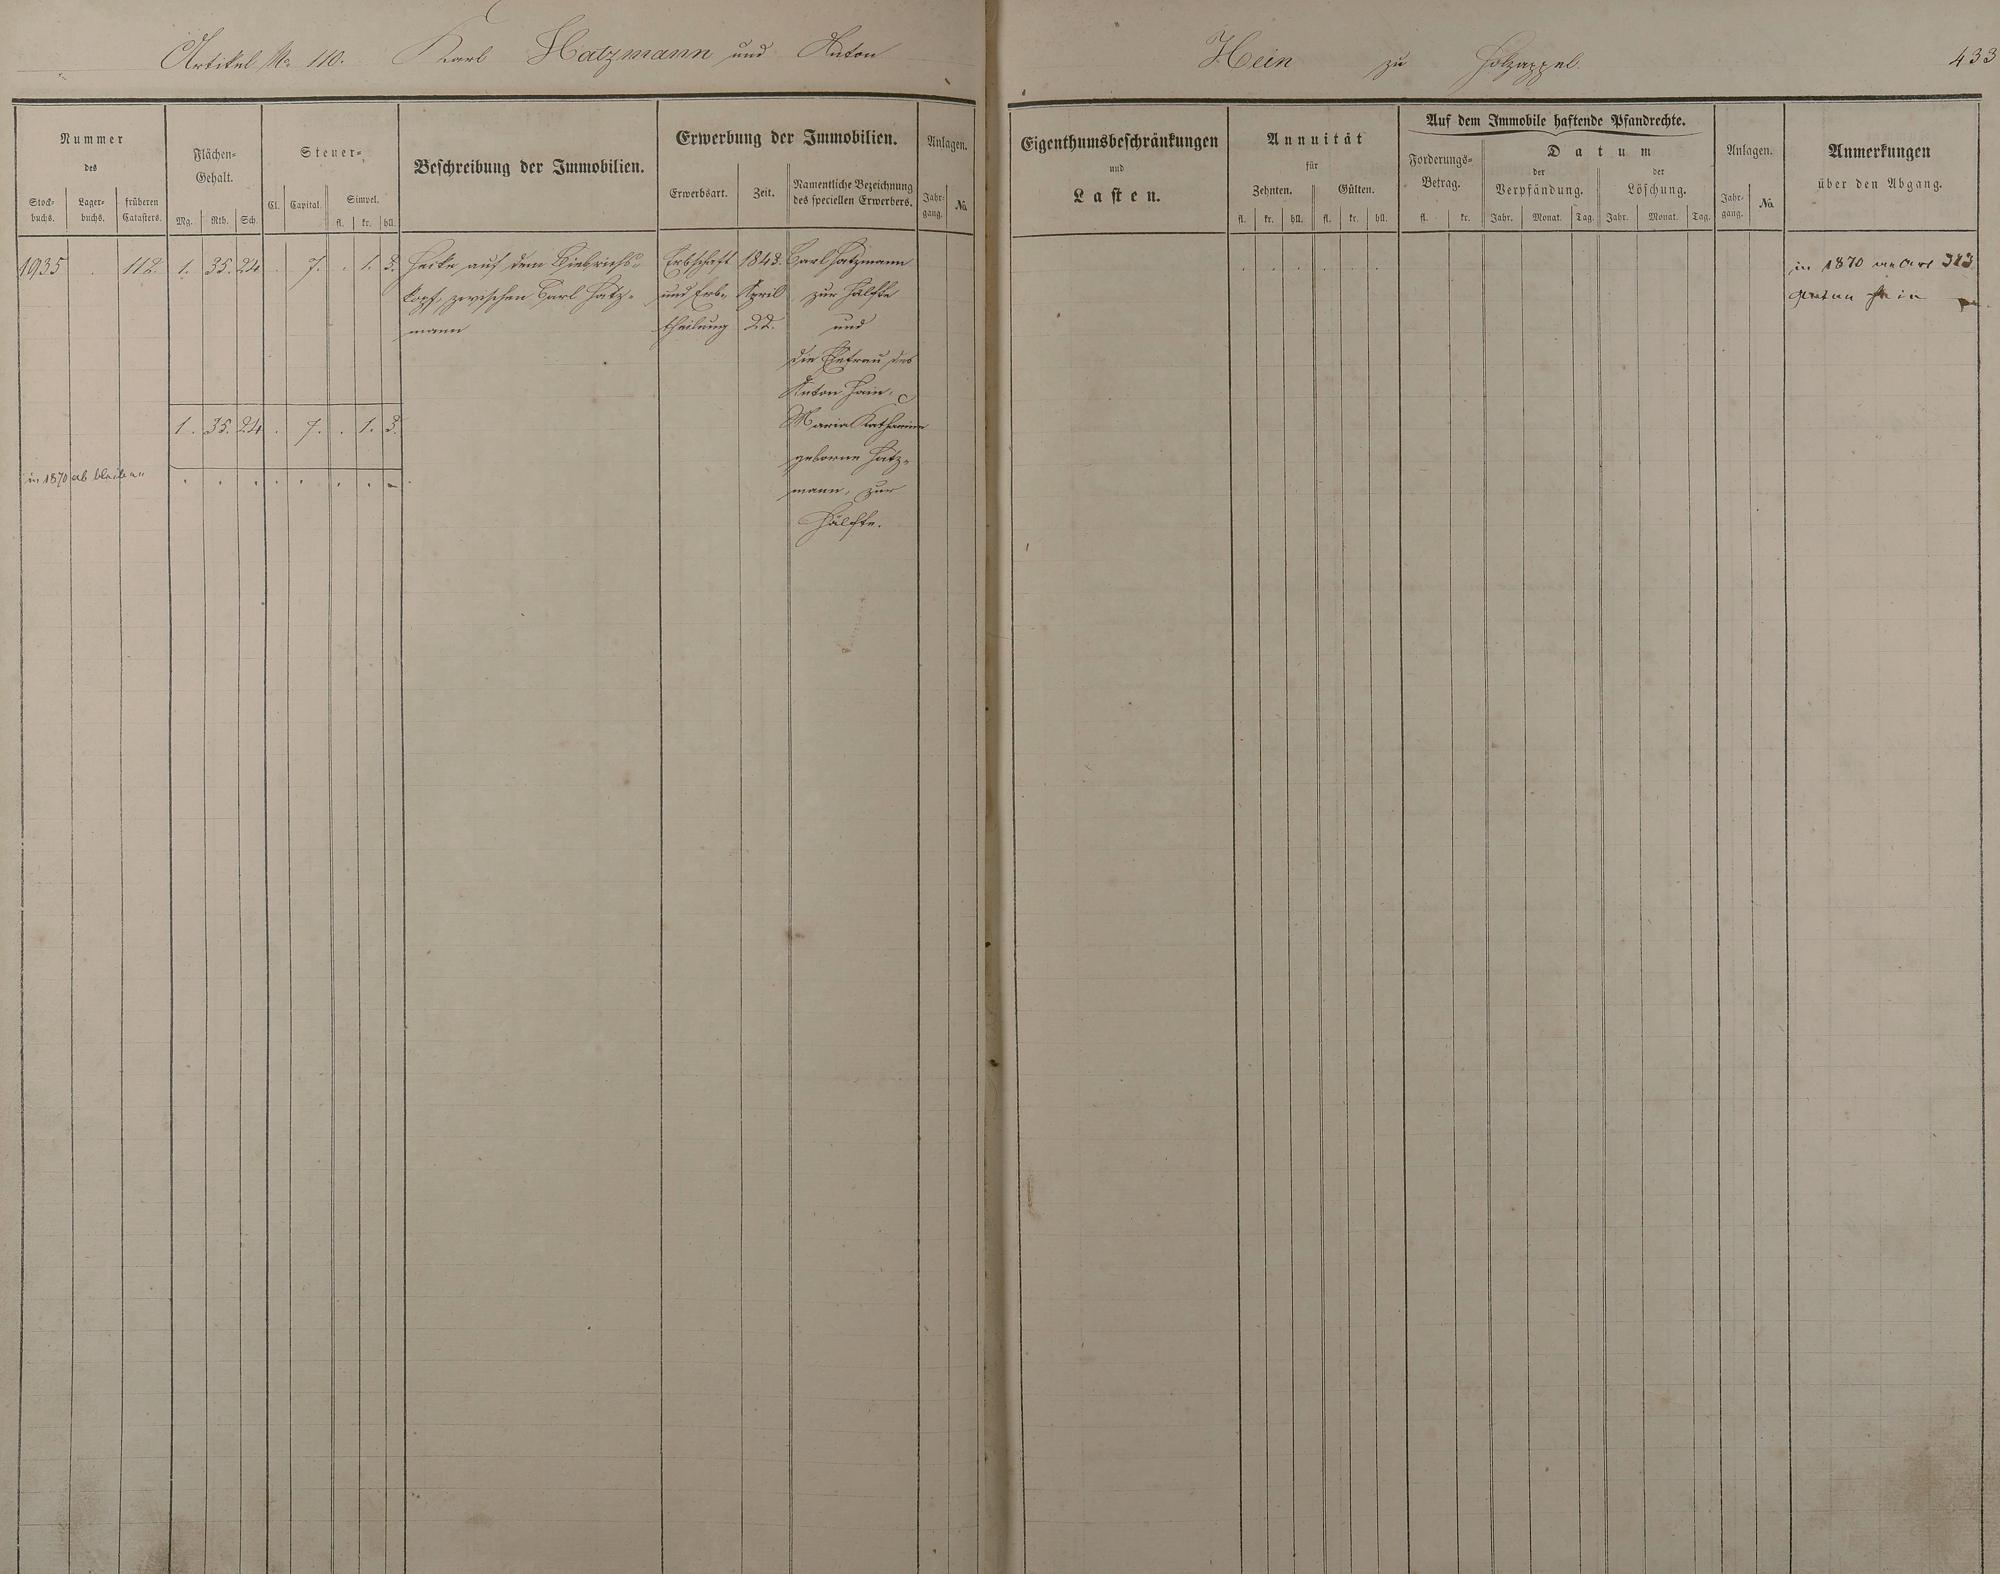 Artikel No. 110. Karl Hatzmann und Anton Hein zu Holzappel.
433
Nummer
des
Stock-
buchs.
Lager-
buchs.
früheren
Catasters.
Flächen-
Gehalt.
Mg. Rth. Sch.
Steuer-
Cl. Capital.
Simpel.
fl. kr. hll.
Beschreibung der Immobilien.
Erwerbung der Immobilien.
Erwerbsart. Zeit.
Namentliche Bezeichnung
des speciellen Erwerbers.
Anlagen.
Jahr-
gang.
No.
Eigenthumsbeschränkungen
und
Lasten.
Annuität
für
Zehnten. Gülten.
fl. kr. hll. fl. kr. hll.
Auf dem Immobile haftende Pfandrechte.
Forderungs-
Betrag.
fl. kr.
Datum
der
Verpfändung.
Jahr. Monat. Tag.
der
Löschung.
Jahr. Monat. Tag.
Anlagen.
Jahr-
gang.
No.
Anmerkungen
über den Abgang.
1935 . 112. 1. 35. 24 . 7. . 1. 3.
Hecke auf dem
kopf, zwischen Carl Hatz-
mann
Erbschaft
und Erb-
theilung
1843.
April
22.
Carl Hatzmann
zur Hälfte
und
die Ehefrau des
Anton Hein,
Maria Katharina
geborne Hatz-
mann, zur
Hälfte.
1. 35. 24 . 7. . 1. 3.
in 1870 ab bleiben
in 1870 Art 313
Hein